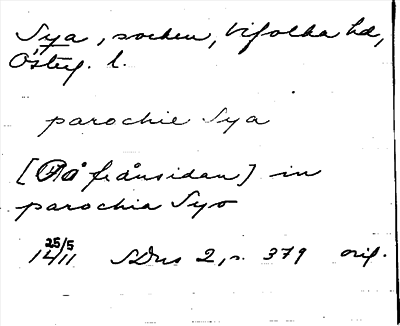 Sya, socken, Vifolka hd,
Österg. l.
parochie Sya
[På frånsidan] in
parochia Syo
14 25/5 11 SDns 2, s. 379 orig.